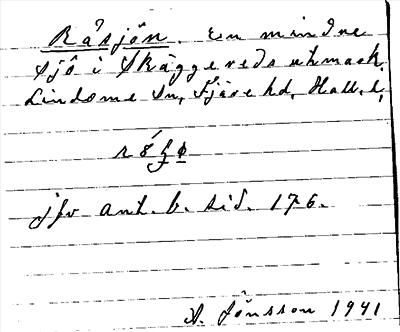 Råsjön. En mindre
sjö i Skäggereds utmark.
Lindome sn, Fjäre hd, Hall. l,
jfv ant. b. sid. 176.
A. Jönsson 1941